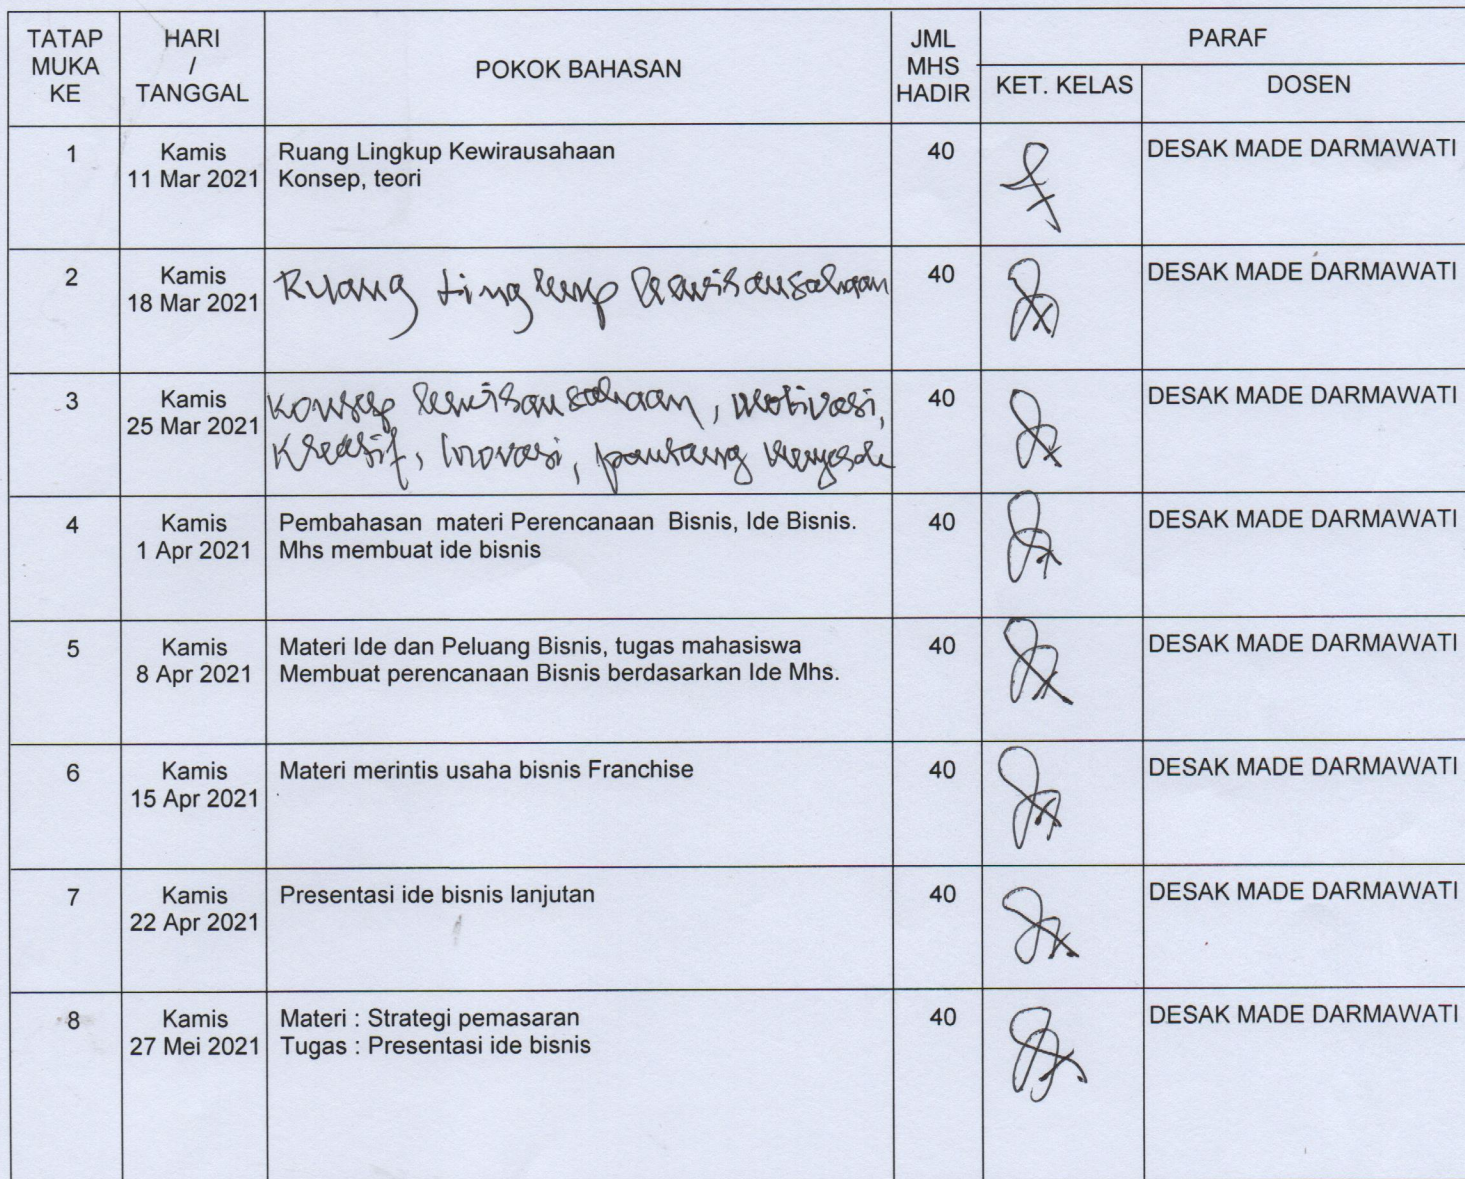 TATAP MUKA KE
HARI / TANGGAL
POKOK BAHASAN
JML MHS HADIR
PARAF
KET. KELAS
DOSEN
1
Kamis
11 Mar 2021
Ruang Lingkup Kewirausahaan
Konsep, teori
40
DESAK MADE DARMAWATI
2
Kamis
18 Mar 2021
Ruang Lingkup Kewirausahaan
40
DESAK MADE DARMAWATI
3
Kamis
25 Mar 2021
Konsep kewirausahaan, motivasi,
Kreatif, Inovasi, pantang
40
DESAK MADE DARMAWATI
4
Kamis
1 Apr 2021
Pembahasan materi Perencanaan Bisnis, Ide Bisnis.
Mhs membuat ide bisnis
40
DESAK MADE DARMAWATI
5
Kamis
8 Apr 2021
Materi Ide dan Peluang Bisnis, tugas mahasiswa
Membuat perencanaan Bisnis berdasarkan Ide Mhs.
40
DESAK MADE DARMAWATI
6
Kamis
15 Apr 2021
Materi merintis usaha bisnis Franchise
40
DESAK MADE DARMAWATI
7
Kamis
22 Apr 2021
Presentasi ide bisnis lanjutan
40
DESAK MADE DARMAWATI
8
Kamis
27 Mei 2021
Materi : Strategi pemasaran
Tugas : Presentasi ide bisnis
40
DESAK MADE DARMAWATI